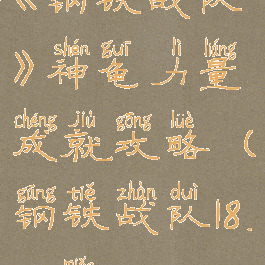 《钢铁战队
shén guī lì liàng
》神龟 力量
chéng jiù gōng lüè
成就攻略（
gāng tiě zhàn duì
钢铁战队18.